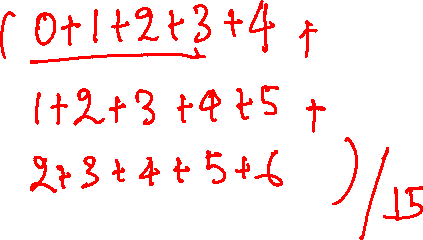 ( 0+1+2+3+4 +
1+2+3+4+5 +
2+3+4+5+6 )/15